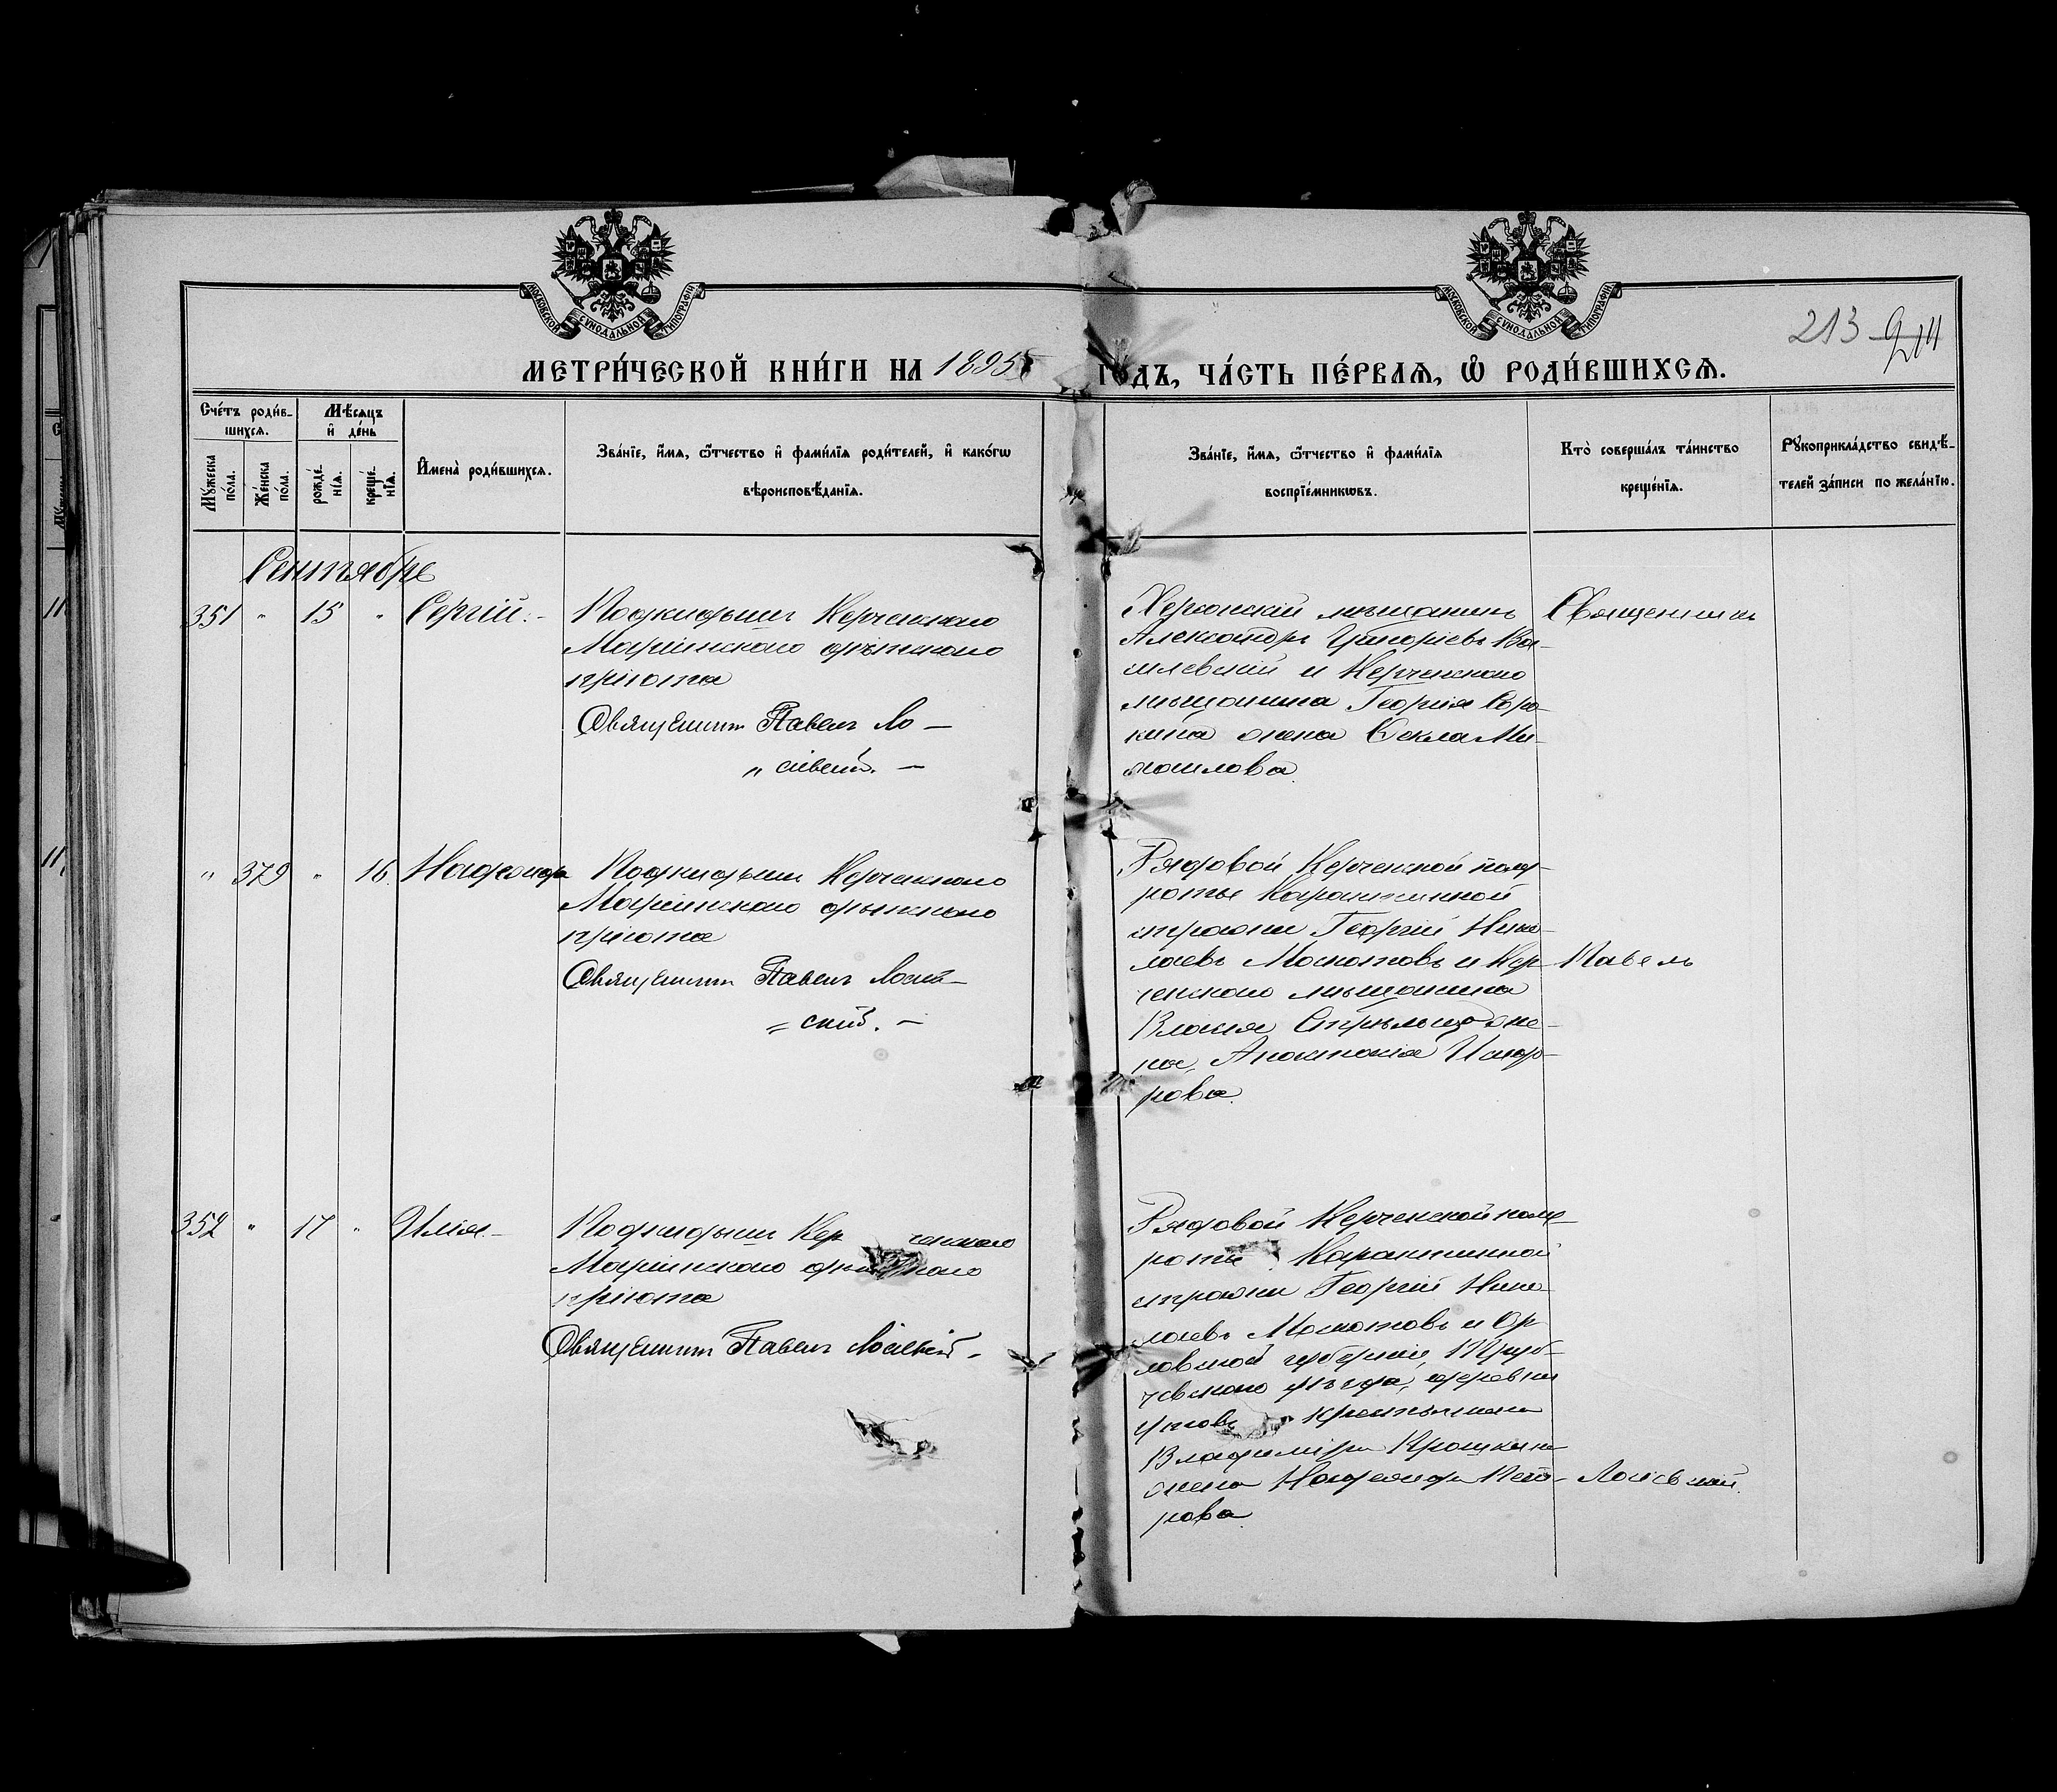 МОСКОВСКОЙ СУНОДАЛЬНОЙ ТИПОГРАФІИ
МОСКОВСКОЙ СУНОДАЛЬНОЙ ТИПОГРАФІИ
213
МЕТРИ́ЧЕСКОЙ КНИ́ГИ НА 1895 ГОДЪ, ЧА́СТЬ ПЕ́РВАЯ, Ѡ҆ РОДИ́ВШИХСЯ.
Сче́тъ роди́в-
шихся.
Мꙋ́жеска по́ла.
Же́нска по́ла.
Мѣ́сяцъ
и҆ де́нь
рожде́-
нїя.
креще́-
нїя.
И҆мена̀ роди́вшихся.
Зва́нїе, и҆́мя, ѻ҆́тчество и҆ фами́лїя роди́телей, и҆ како́гѡ
вѣроисповѣ́данїя.
Зва́нїе, и҆́мя, ѻ҆́тчество и҆ фами́лїя
воспрїе́мникѡвъ.
Кто̀ соверша́лъ та́инство
креще́нїя.
Рꙋкоприкла́дство свидѣ́-
телей за́писи по жела́нїю.
Сентябрь
351 " 15 " Сергій.-
Подкидышъ Керченскаго
Маріинскаго дѣтскаго
пріюта
Священникъ Павелъ Ло-
" сіевскій. -
Херсонскій мѣщанинъ
Александръ Григорьевъ Ва-
силевскій и Керченскаго
мѣщанина Георгія Соро-
кина жена Ѳекла Ми-
хаилова.
Священникъ
" 379 " 16. Надежда
Подкидышъ Керченскаго
Маріинскаго дѣтскаго
пріюта
Священникъ Павелъ Лосіев-
= скій. -
Рядовой Керченской полу-
роты Карантинной
стражи Георгій Нико-
лаевъ Москотовъ и Кер-
ченскаго мѣщанина
Власія Стрѣльцова же-
на, Анастасія Исидо-
рова.
Павелъ
352 " 17 " Илія-
Подкидышъ Керченскаго
Маріинскаго дѣтскаго
пріюта
Священникъ Павелъ Лосіевскій-
Рядовой Керченской полу-
роты Карантинной
стражи Георгій Нико-
лаевъ Москотовъ и Ор-
ловской губерніи, Труб-
чевскаго уѣзда, деревни
крестьянина
Владиміра Крошкина
жена Надежда Пет-
рова.
Лосіевскій.